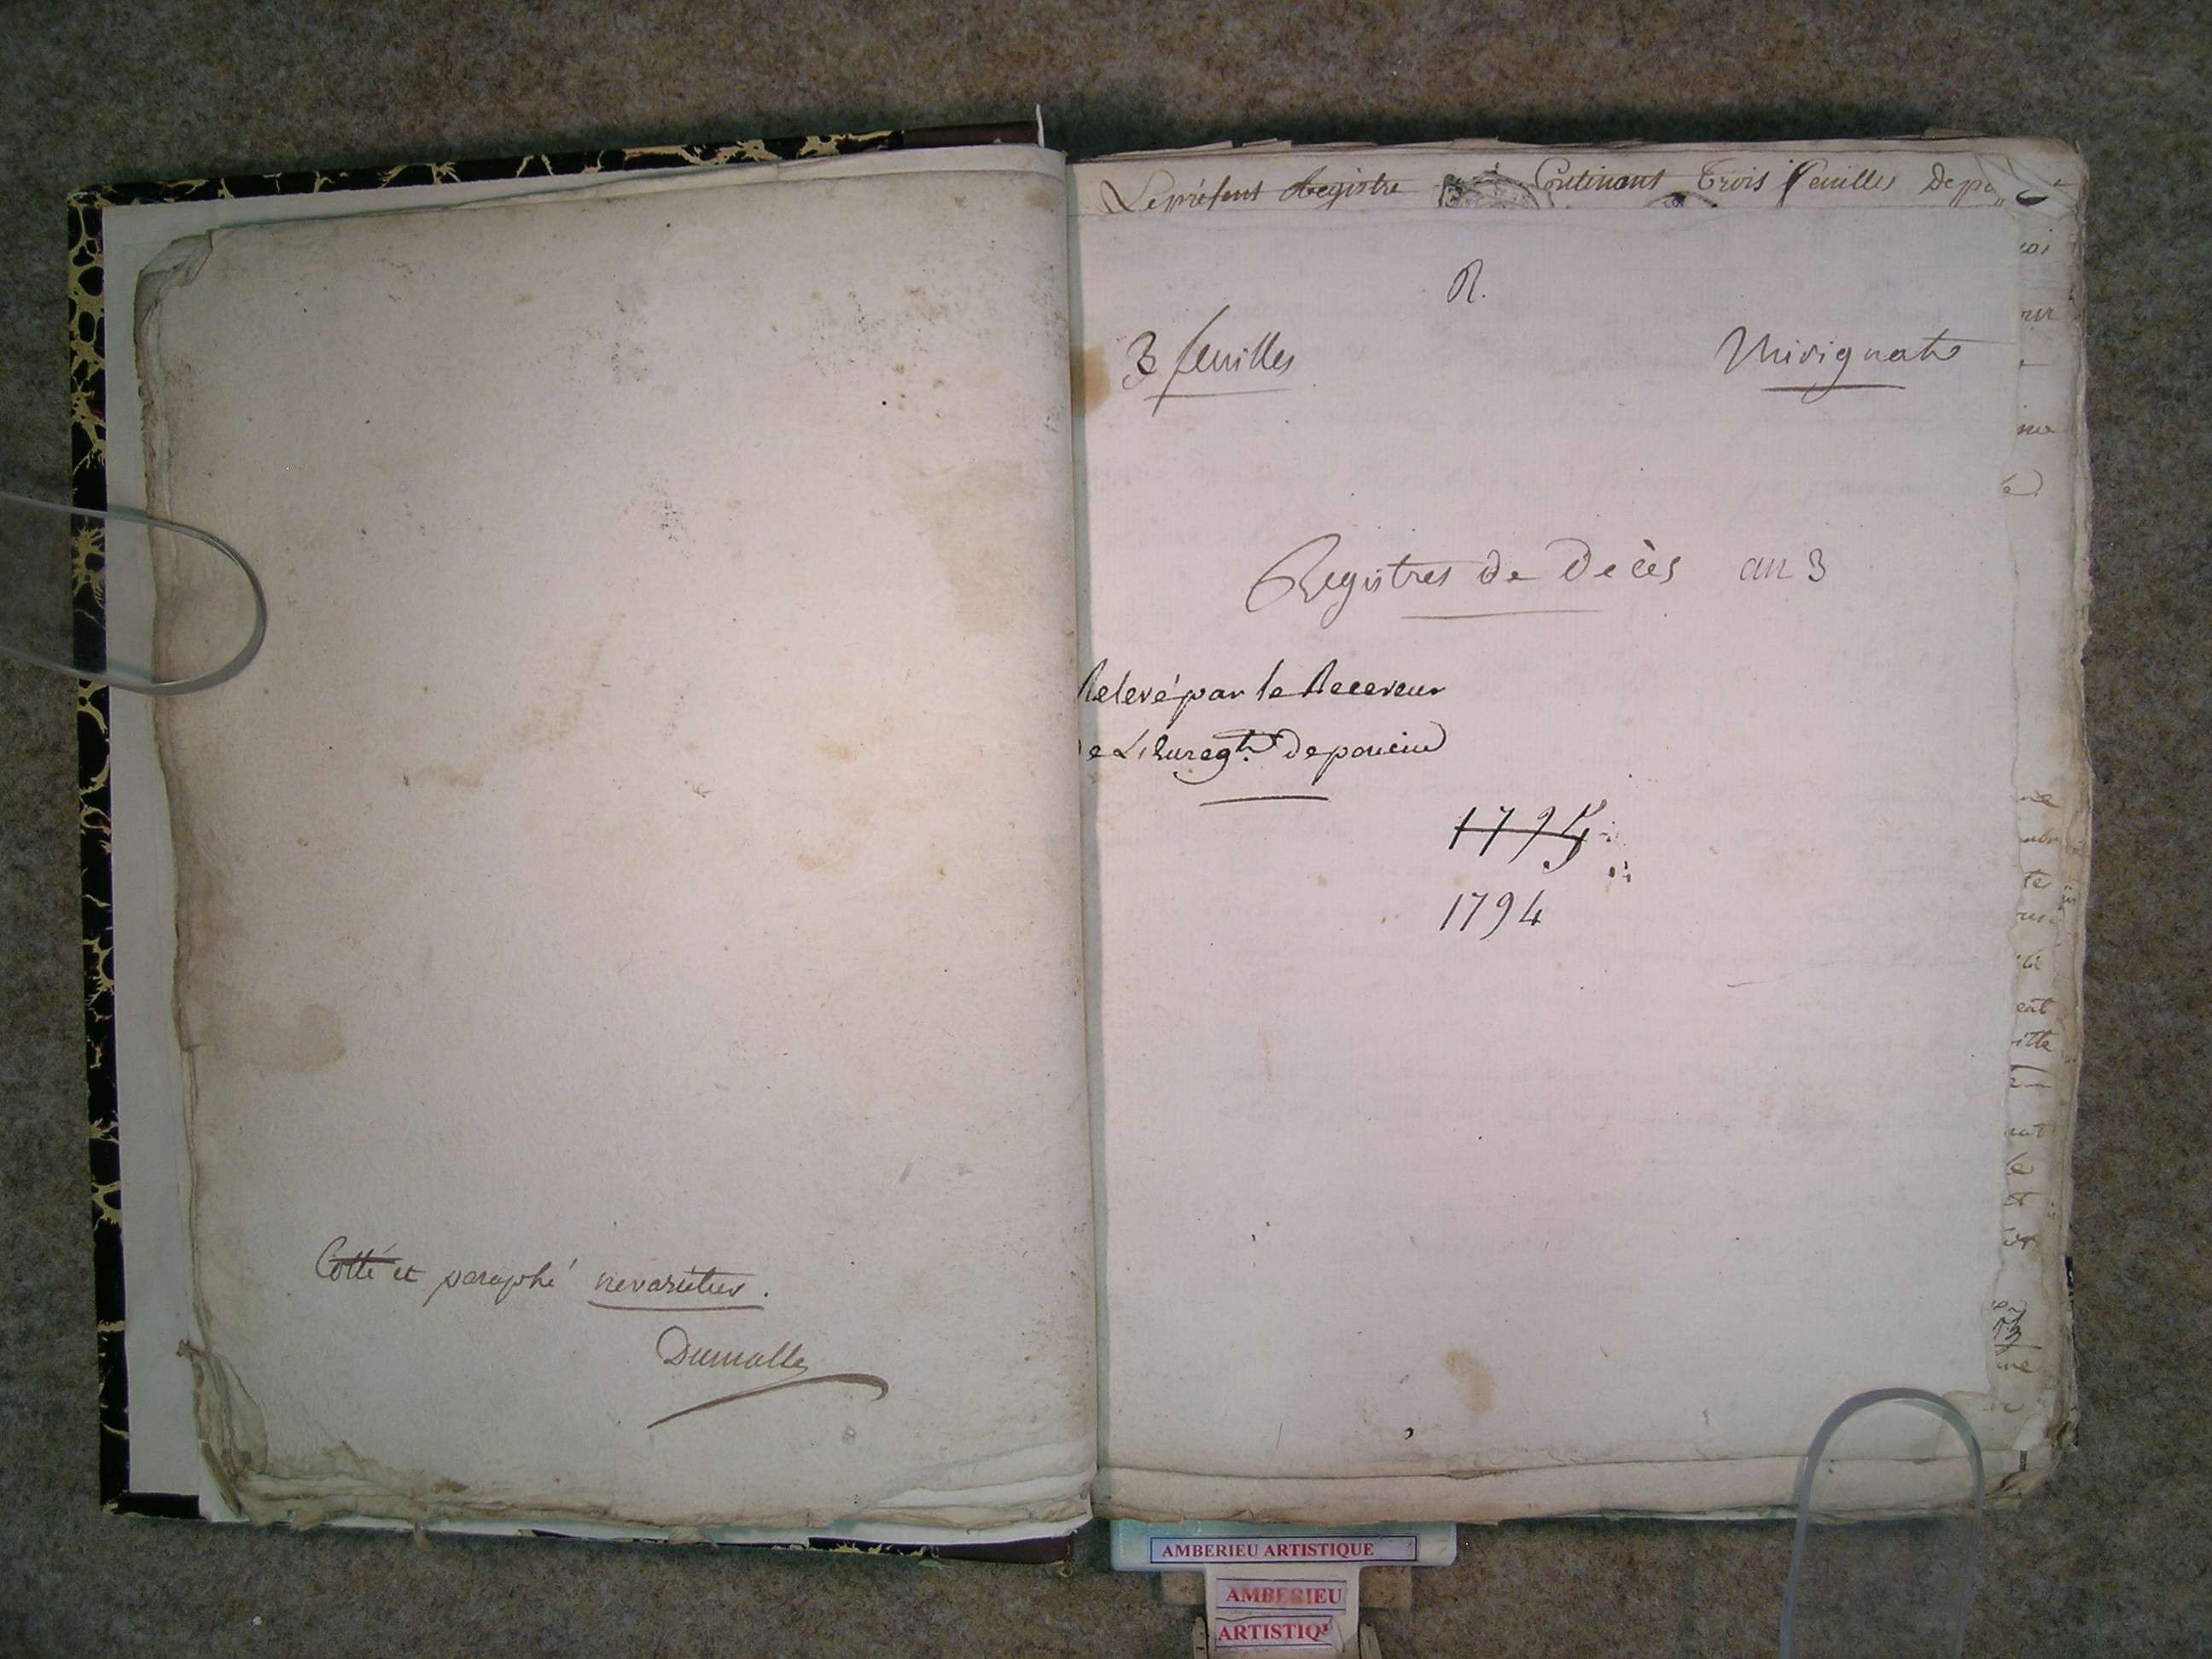 Cotté et paraphé nevarietur.
Dumolle
Le présent Registre Contenant Trois feuilles De
R.
3 feuilles
Mérignat
Registres de Décès an 3
Relevé par le Receveur
de L'Enregt. de poncin
1795
1794
AMBERIEU ARTISTIQUE
AMBERIEU
ARTISTIQ